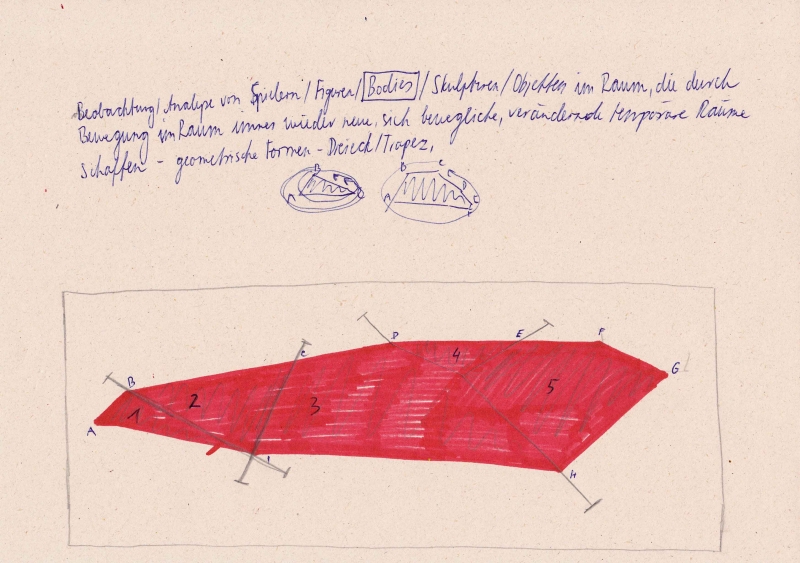 Beobachtung/Analyse von Spielern/Figuren/Bodies/Skulpturen/Objekten im Raum, die durch
Bewegung im Raum immer wieder neue, sich bewegliche, verändernde temporäre Räume
schaffen - geometrische Formen - Dreieck/Trapez,
B C
A
B C D
A
D E F
C
B 4 G
2 3 5
1
A
I H